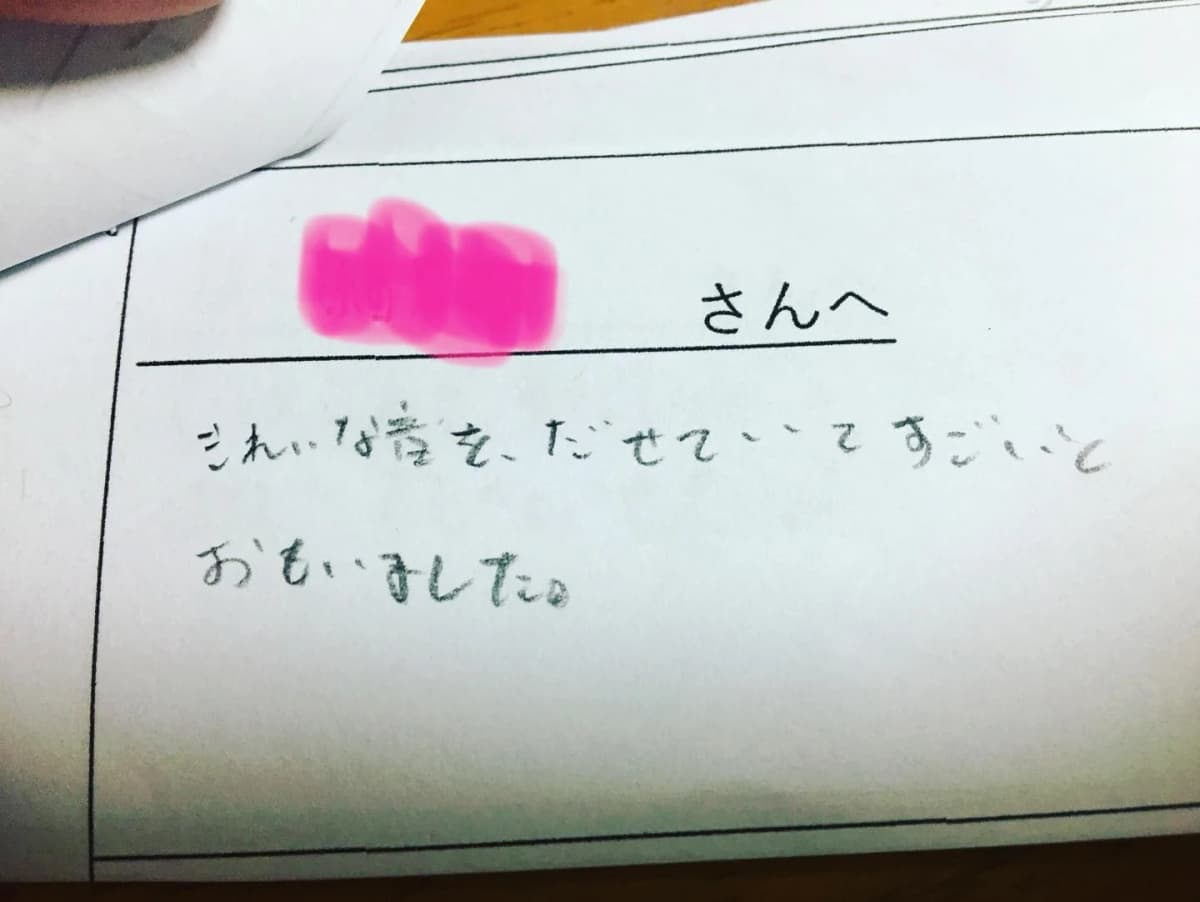 さんへ
きれいな音を、だせていてすごいと
おもいました。